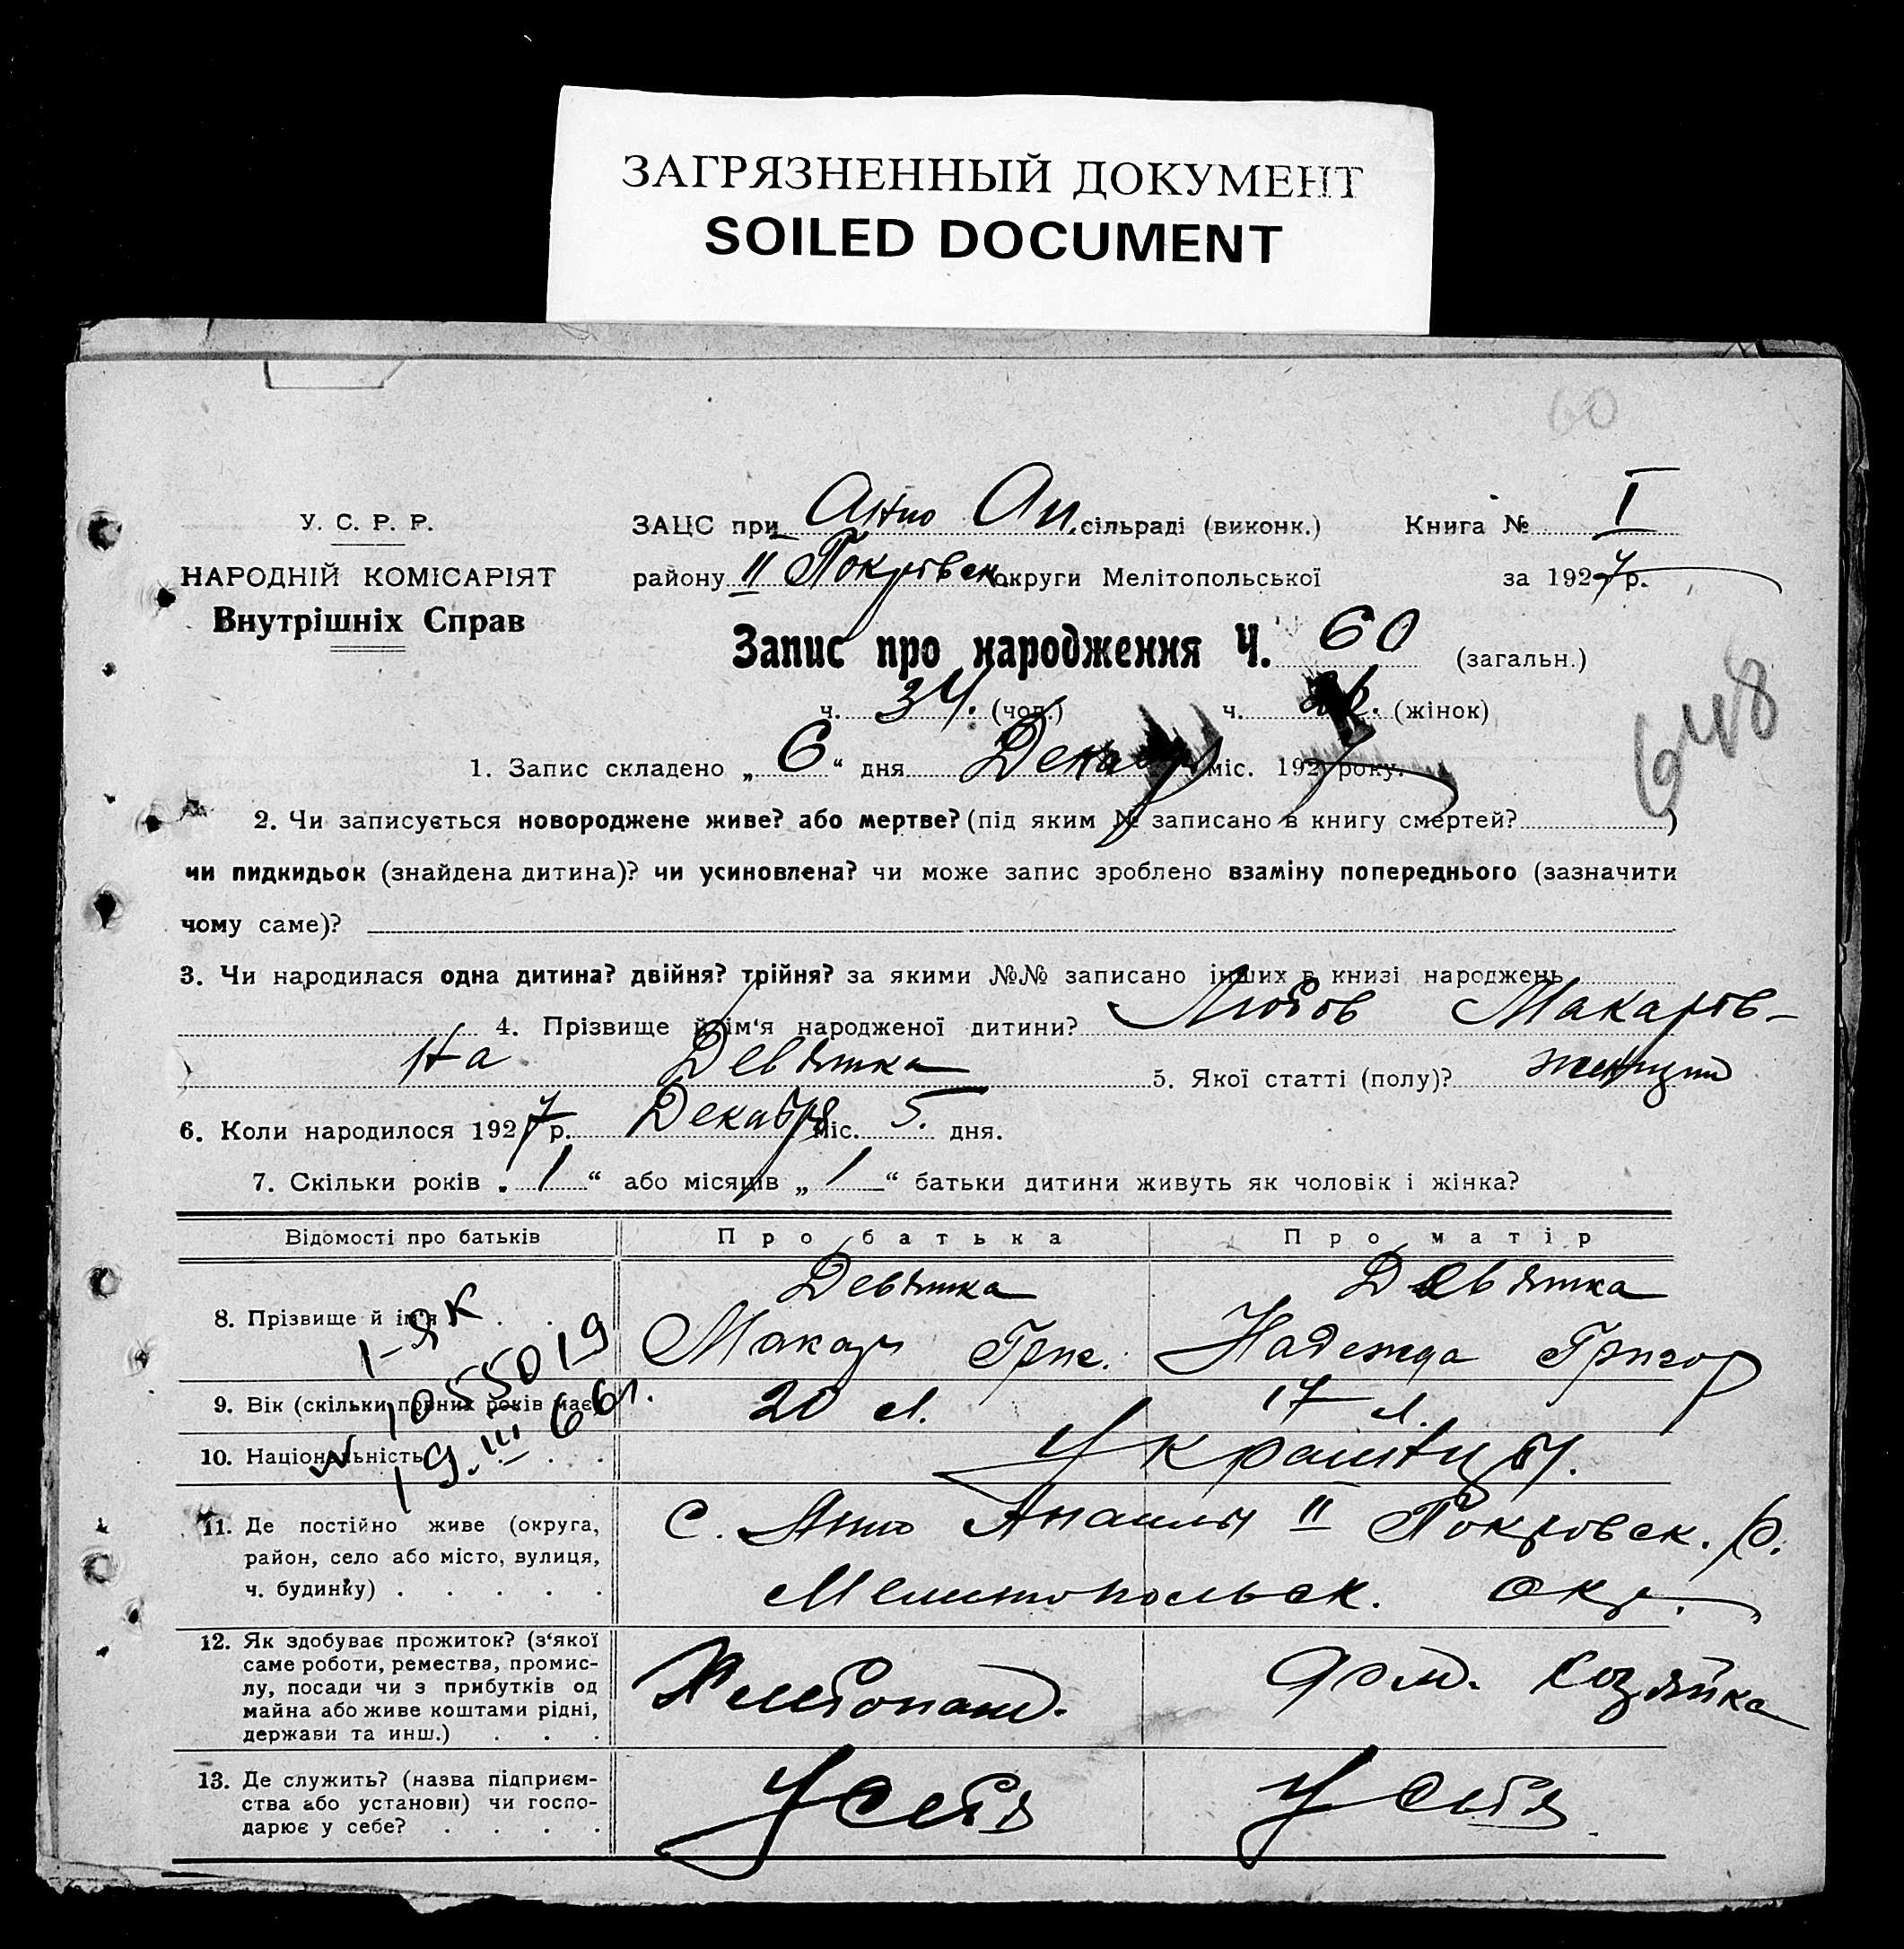 ЗАГРЯЗНЕННЫЙ ДОКУМЕНТ
SOILED DOCUMENT
60
У. С. Р. Р.
НАРОДНІЙ КОМІСАРІЯТ
Внутрішніх Справ
ЗАЦС при Анно Оп. сільраді (виконк.) Книга № I
району II Покровск. округи Мелітопольської за 1927 р.
Запис про народження Ч. 60 (загальн.)
ч. 34. (чол.) ч. (жінок)
648
1. Запис складено „ 6 “ дня Декабр міс. 1927 року.
2. Чи записується новороджене живе? або мертве? (під яким № записано в книгу смертей? )
чи пидкидьок (знайдена дитина)? чи усиновлена? чи може запис зроблено взаміну попереднього (зазначити
чому саме)?
3. Чи народилася одна дитина? двійня? трійня? за якими №№ записано інших в книзі народжень
4. Прізвище й ім‘я народженої дитини? Любов Макаров-
на Девятка 5. Якої статті (полу)?
6. Коли народилося 1927 р. Декабря міс. 5. дня.
7. Скільки років „ 1 “ або місяців „ 1 “ батьки дитини живуть як чоловік і жінка?
Відомості про батьків Про батька Про матір
8. Прізвище й ім‘я Девятка Девятка
Макар Григ. Надежда Григор
I-ЯК
№ 1055019
19.III 66г.
9. Вік (скільки повних років має) 20 л. 17 л.
10. Національність Украинцы.
11. Де постійно живе (округа,
район, село або місто, вулиця,
ч. будинку)
с. Анно II Покровск. р.
Мелитопольск. окр.
12. Як здобуває прожиток? (з‘якої
саме роботи, ремества, промис-
лу, посади чи з прибутків од
майна або живе коштами рідні,
держави та инш.)
Хлебопаш. дом. хозяйка
13. Де служить? (назва підприєм-
ства або установи) чи госпо-
дарює у себе?
У себя У себя